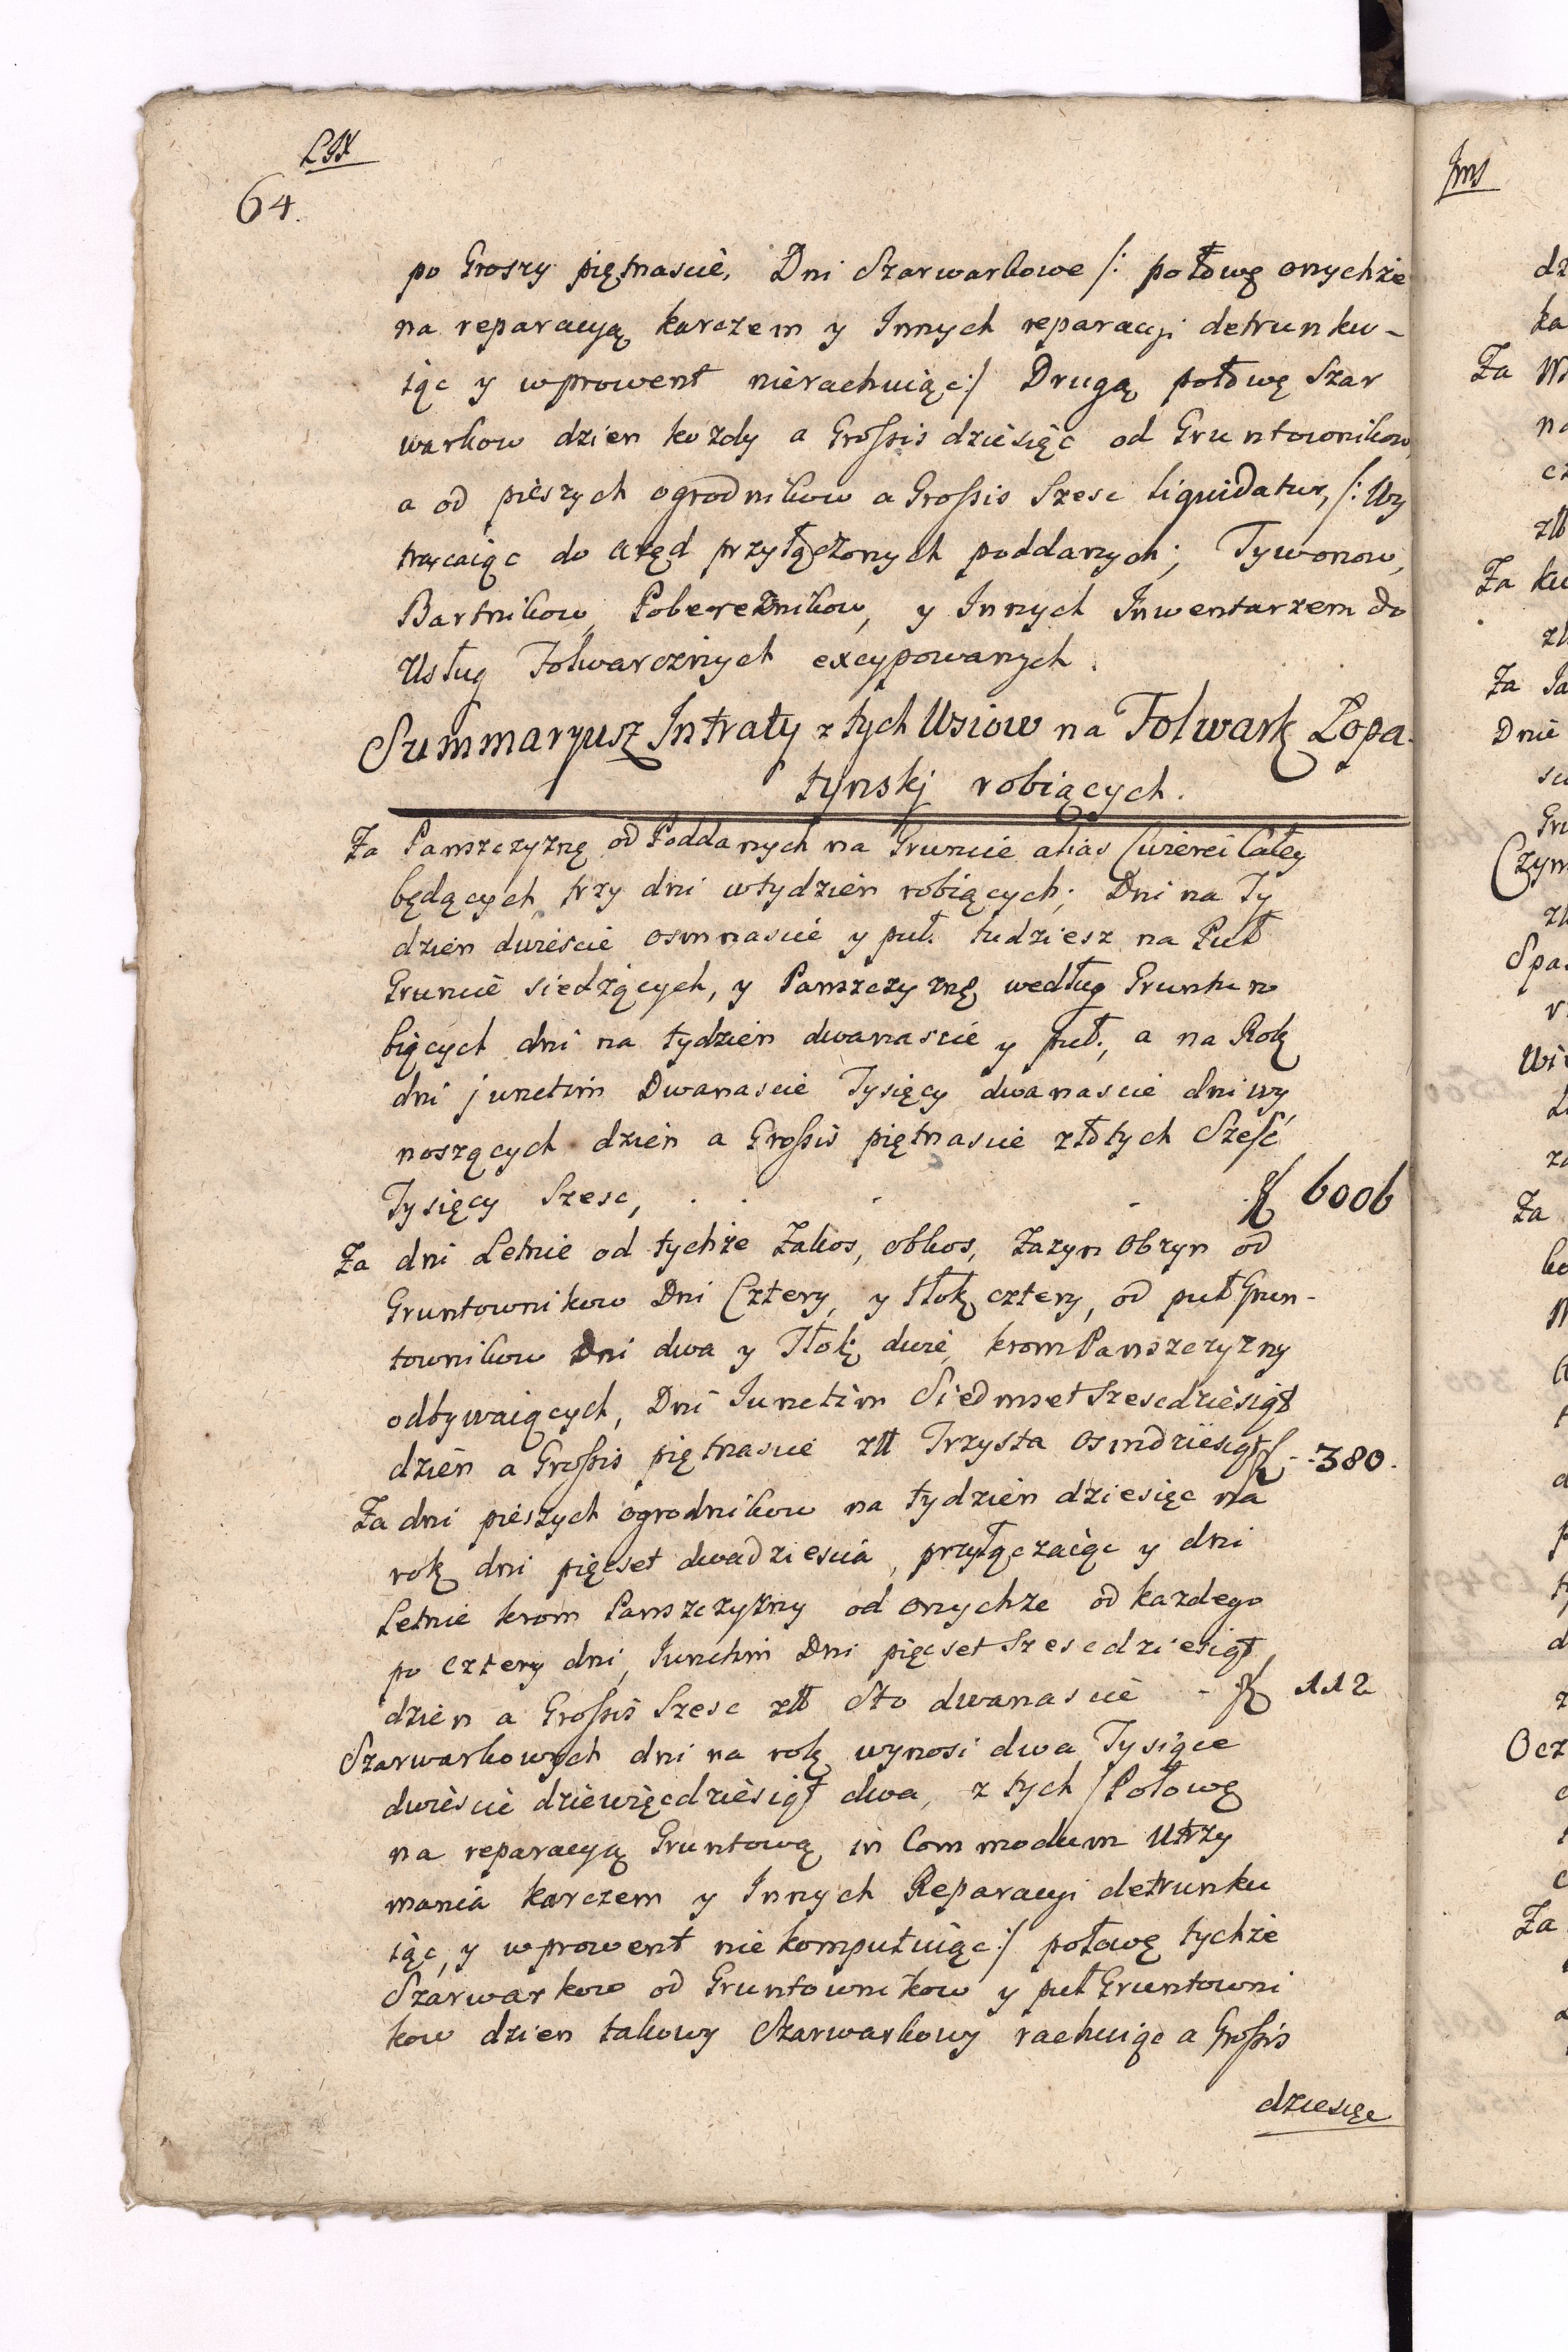 64.
po Groszy piętnascie, Dni Szarwarkowe /: połowę onychże
na reparacyą karczem y Innych reparacyi detrunku-
iąc y wprowent nierachuiąc:/ Drugą połowę Szar
warkow dzien kozdy a Grossis dziesięc od Gruntownikow,
a od pieszych ogrodnikow a Grossis Szesc liquidatur, /: Wy
trącaiąc do Urzęd przyłączonych poddanych; Tywonow,
Bartnikow, Pobereznikow, y Innych Inwentarzem do
Usług Folwarcznych excypowanych.
Summaryusz Intraty z tych Wsiow na Folwark Lopa-
tynskj robiących.
Za Panszczyznę od Poddanych na Gruncie alias Cwierci Całey
będących trzy dni wtydzien robiących; Dni na Ty
dzien dwiescie osmnascie y puł. tudziesz na Puł
Gruncie siedzących, y Panszczyznę według Gruntu ro
biących dni na tydzien dwanascie y puł., a na Rok
dni junctim Dwanascie Tysięcy dwanascie dni wy
noszących dzien a Grossis piętnascie złotych Sześć
Tysięcy Szesc, . . . . 6006
Za dni Letnie od tychże Zakos, obkos, Zazyn Obzyn od
Gruntownikow Dni Cztery, y tłok cztery, od puł Grun-
townikow Dni dwa y Tłok dwie, krom Panszczyzny
odbywaiących, Dni Iunctim Siedmset Szescdziesiąt
dzien a Grossis piętnascie złł Trzysta osmdziesiąt 380.
Za dni pieszych ogrodnikow na tydzien dziesięc na
rok dni pięcset dwadziescia, przyłączaiąc y dni
Letnie krom Panszczyzny od onychze od kazdego
po cztery dni, Iunctim Dni pięcset Szescdziesiąt
dzien a Grossis Szesc złł Sto dwanascie - 112
Szarwarkowych dni na rok wynosi dwa Tysiące
dwiescie dziewięcdziesiąt dwa, z tych /Połowę
na reparacyą Gruntową in Commodum Utrzy
mania karczem y Innych Reparacyi detrunku
iąc, y wprowent nie komputuiąc:/ połowę tychże
Szarwarkow od Gruntownikow y puł Gruntowni
kow dzien takowy Szarwarkowy rachuiąc a Grossis
dziesięc